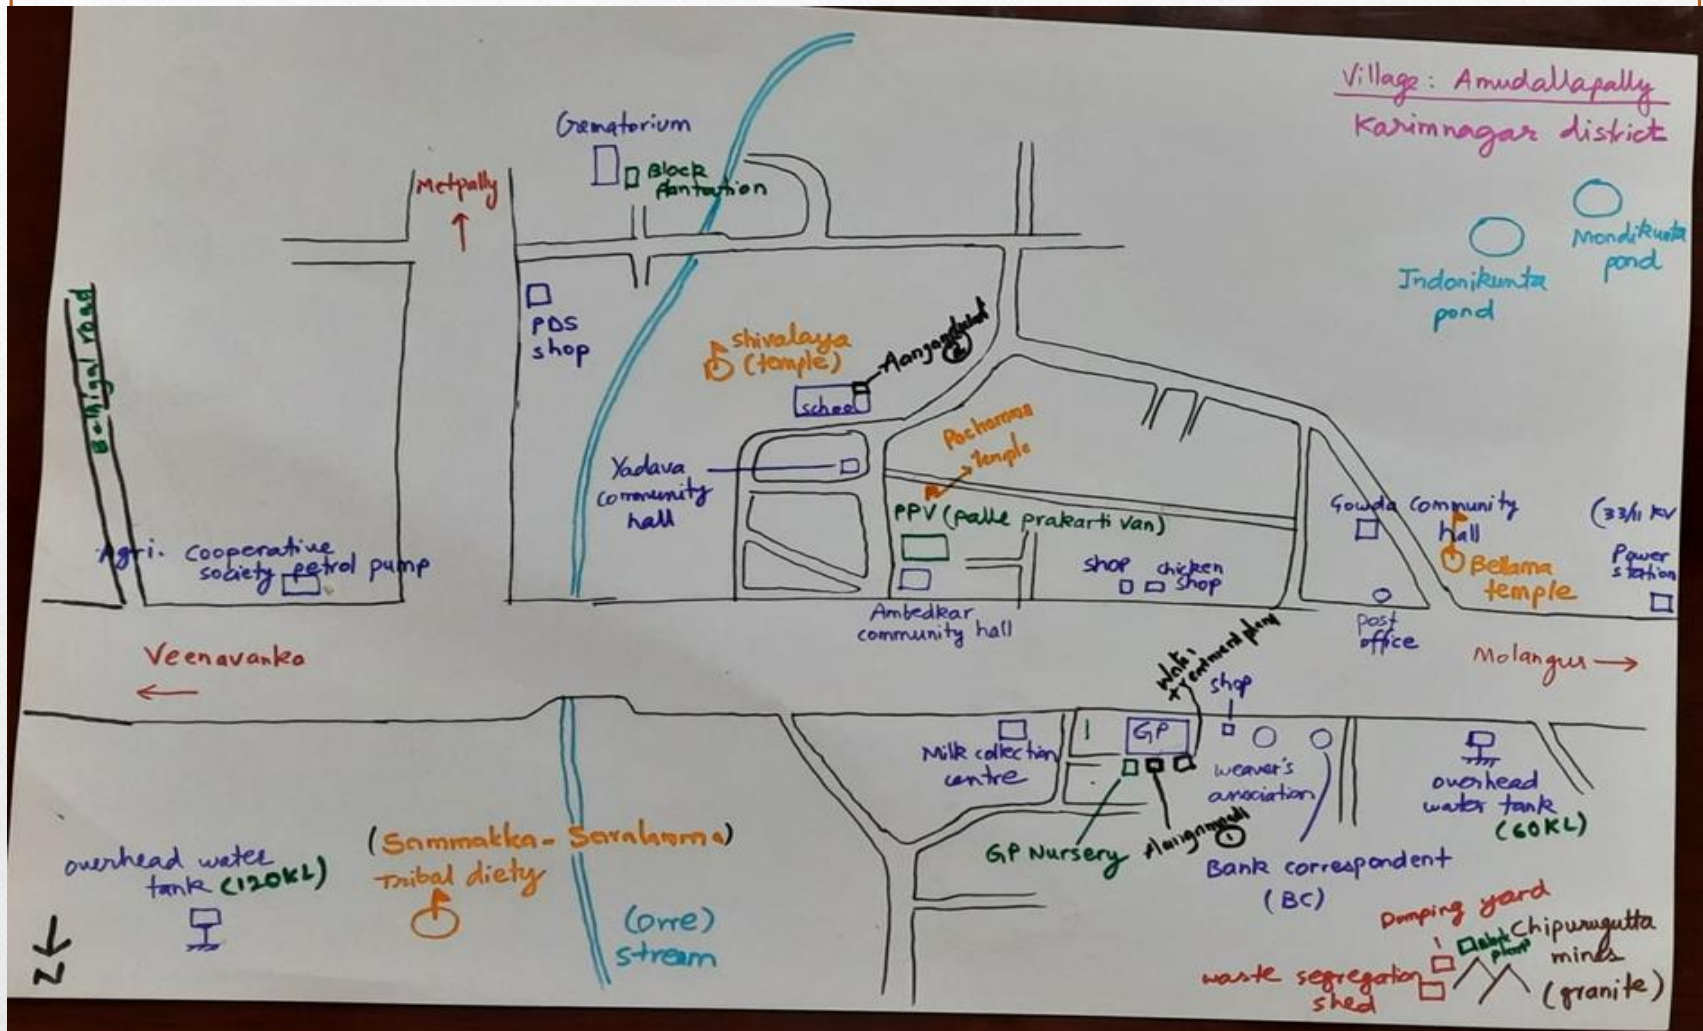 Village: Amudallapally
Karimnagar district
Crematorium
Block
Plantation
Metpally
Mondikunta
pond
Indonikunta
pond
Bethigal road
PDS
shop
Shivalaya
(temple)
Aanganwadi
2
School
Pochamma
Temple
Yadava
community
hall
PPV (palle prakarti van)
Gowda community
hall
(33/11 KV
Power
station
Agri. cooperative
society petrol pump
shop
chicken
shop
Bellama
temple
Ambedkar
community hall
post
office
Veenavanka
Molangur
Water
treatment plant
shop
GP
Milk collection
centre
weaver's
association
overhead
water tank
(60KL)
GP Nursery
1
Bank correspondent
(BC)
overhead water
tank (120KL)
(Sammakka - Saralamma)
Tribal diety
(orre)
stream
N
Dumping yard
Block
plant
Chipurugutta
mines
(granite)
waste segregation
shed